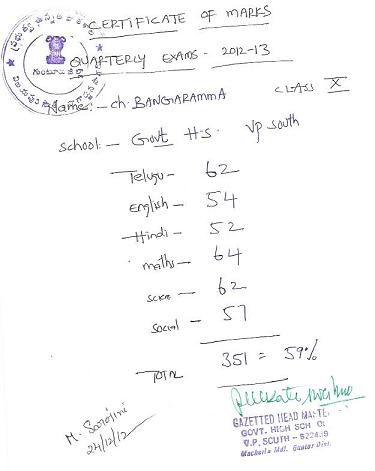 CERTIFICATE OF MARKS
QUARTERLY EXAMS - 2012-13
Name:- ch. BANGARAMMA CLASS X
school:- Govt H.S. VP South
Telugu - 62
English - 54
Hindi - 52
maths - 64
Scien - 62
Social - 57
TOTAL 351 = 59%
M. Sarojini
24/12/12
GAZETTED HEAD MASTE
GOVT. HIGH SCH
V.P. SOUTH -
Macherla Mdl. Guntur Dist.